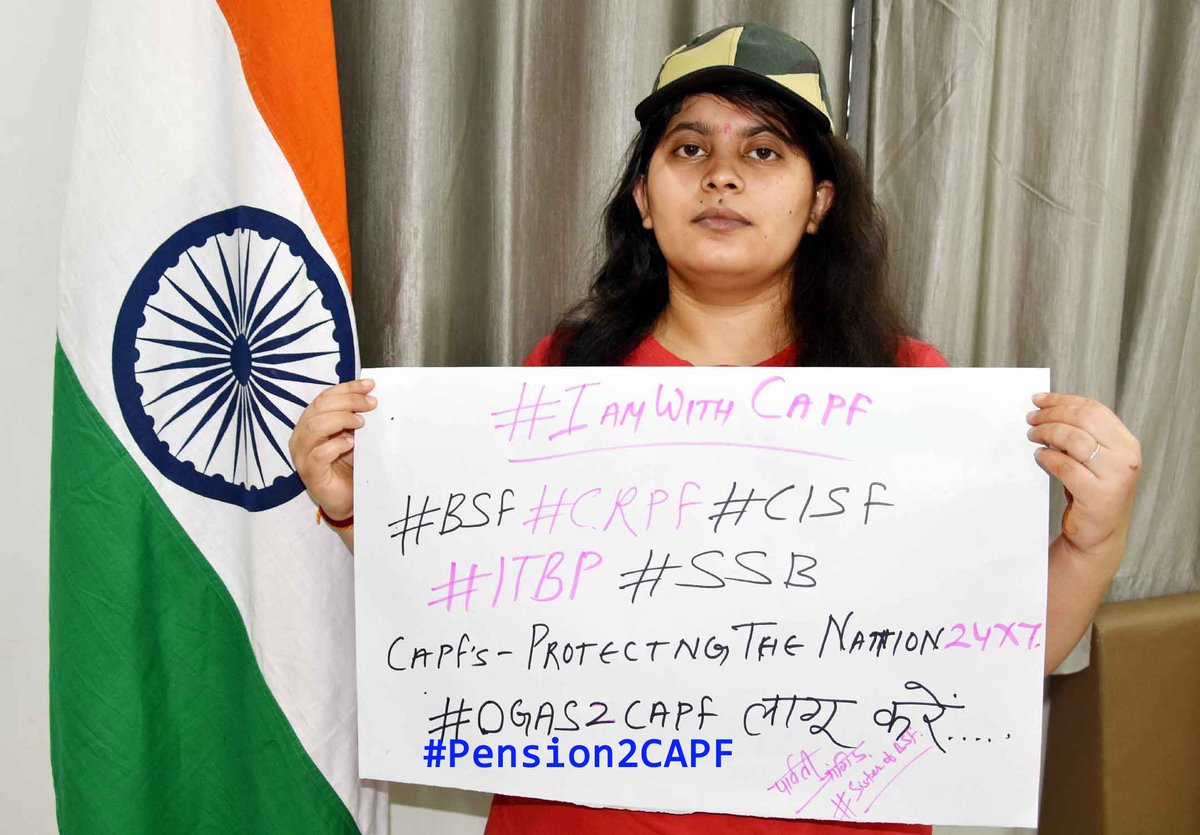 #I AM WITH CAPF
#BSF #CRPF #CISF
#ITBP #SSB
CAPF's - PROTECTNG THE NATTION 24X7.
#OGAS2CAPF लागू करें.....
#Pension2CAPF
पार्वती जांगिड़.
#Sister of BSF.